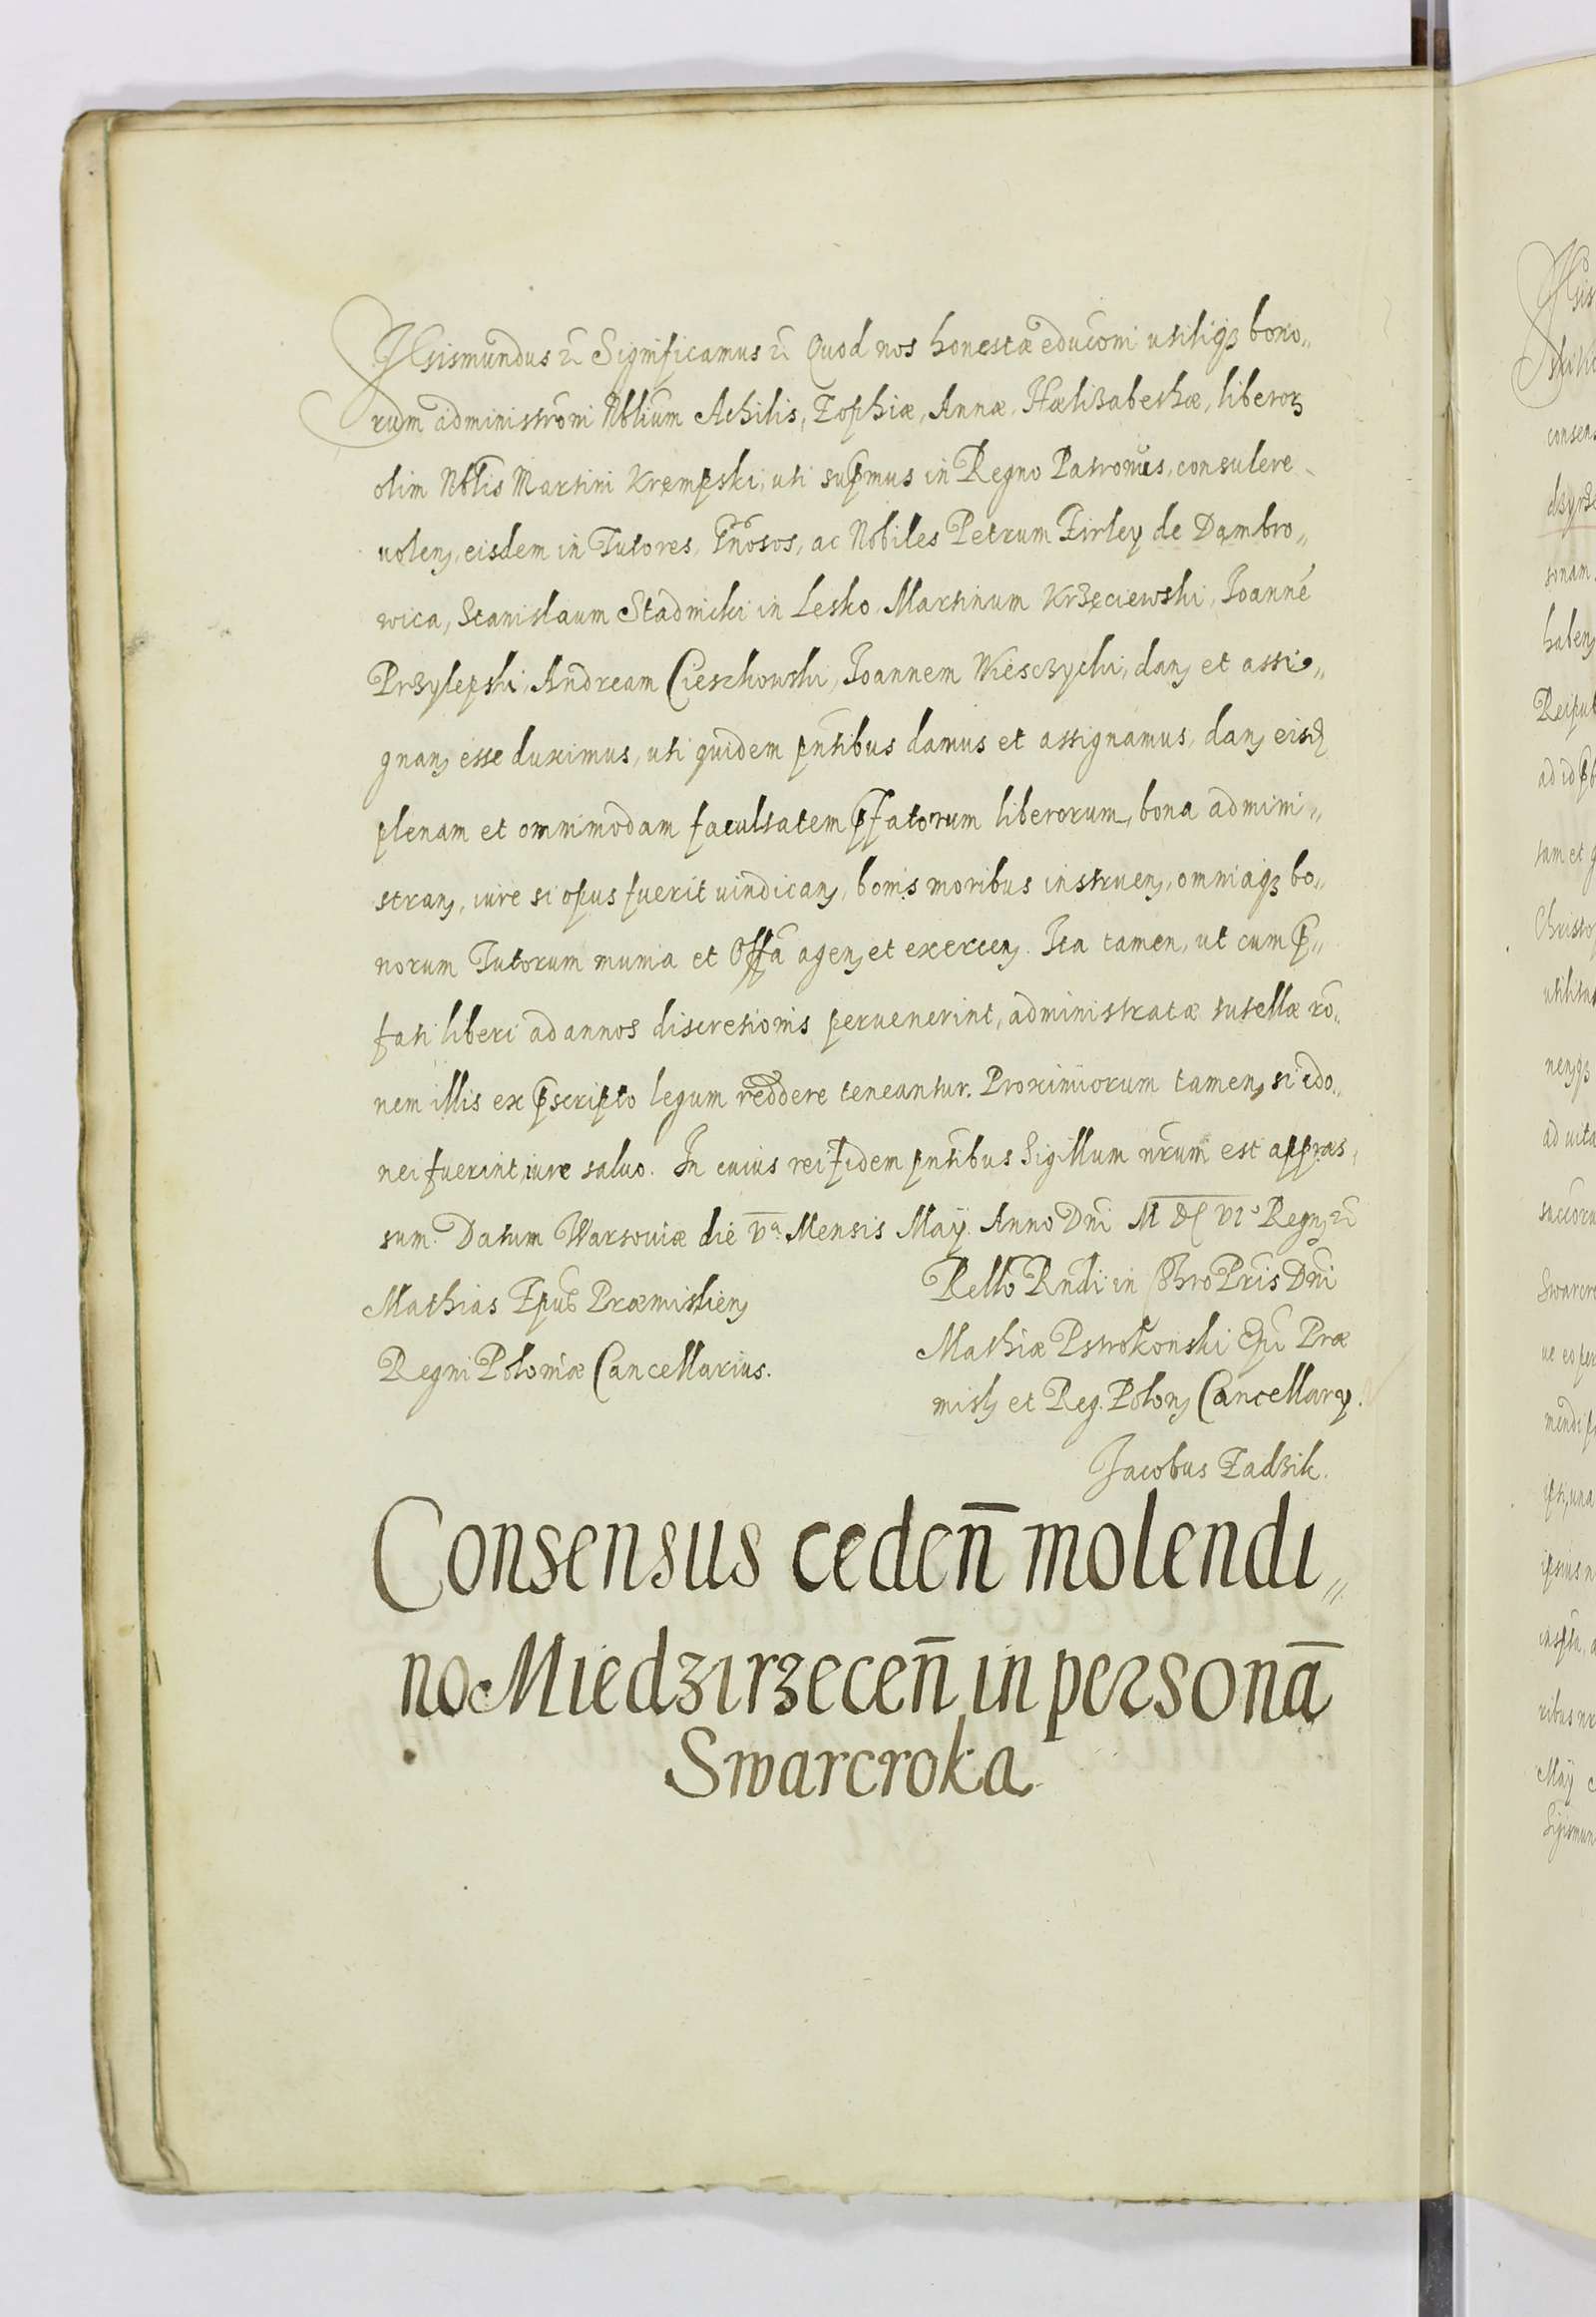 Sigismundus &c̃ Significamus &c̃ Quod nos honestæ educõni utiliq3 bono„
rum administrõni Nblium Achilis, Zophiæ, Annæ, Hælizabethæ, liberor3
olim Nblis Martini Krempski, uti sup̃mus in Regno Patronus, consulere
volen, eisdem in Tutores, Gñosos, ac Nobiles Petrum Firley de Dambro„
wica, Stanislaum Stadnicki in Lesko, Martinum Krzęciewski, Joannẽ
Przylepski, Andream Cieszkowski, Joannem Wiesczycki, dan et assi„
gnan esse duximus, uti quidem pñtibus damus et assignamus, dan eisd
plenam et omnimodam facultatem p̃fatorum liberorum, bona admini„
stran, iure si opus fuerit uindican, bonis moribus instruen, omniaq3 bo„
norum Tutorum munia et Offã agen et exercen. Ita tamen, ut cum p̃„
fati liberi ad annos discretionis peruenerint, administratæ tutellæ rõ„
nem illis ex p̃scripto legum reddere teneantur. Proximiorum tamen, si ido„
nei fuerint, iure saluo. In cuius rei fidem pñtibus Sigillum nr̃um est appræs„
sum. Datum Warsouiæ die Vª Mensis Maÿ. Anno Dñi M DC VIº Regn &c̃
Mathias Epus Præmislien
Regni Poloniæ Cancellarius.
Rello Rñdi in Chro Pr̃is Dñi
Mathiæ Pstrokonski Epĩ Præ
misl et Reg. Polon Cancellary.
Jacobus Zadzik.
Consensus ceden̄ molendi„
no Miedzirzecen̄ in personā
Swarcroka